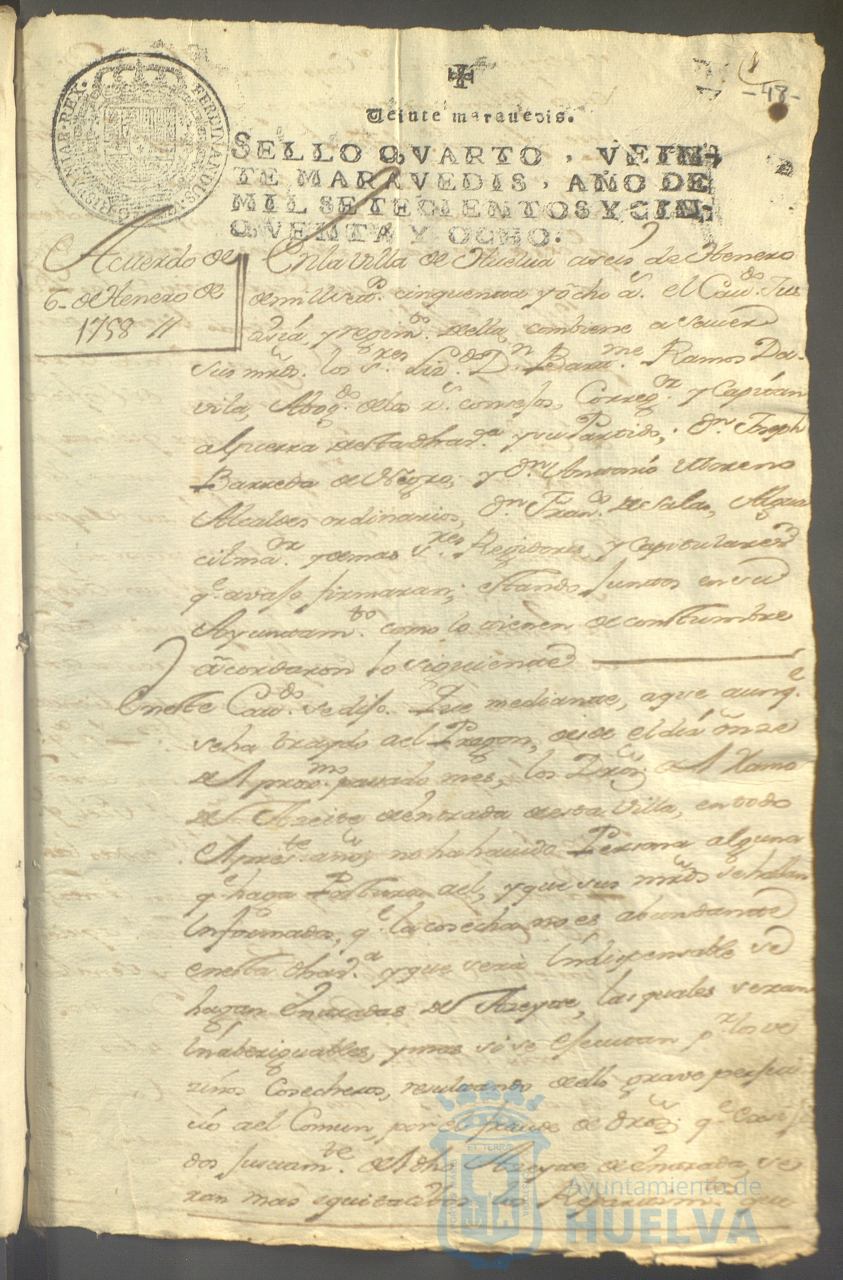 HISPANIAR·REX· FERDINANDUS·
-48-
Veinte marauedis.
SELLO QVARTO, VEIN-
TE MARAVEDIS, AÑO DE
MIL SETECIENTOS Y CIN-
QVENTA Y OCHO.
Acuerdo de
6- de Henero de
1758 //
En la villa de Huelua a seis de Henero
de mill set.ᵒˢ cinquenta y ocho a.ˢ el Cau.ᵈᵒ Jus
ticia, y regim.ᵗᵒ della, combiene a sauer
sus mr̃ds. los s.ʳᵉˢ Liz.ᵈᵒ D.ⁿ Bar.ᵐᵉ Ramos Da-
vila, Abog.ᵈᵒ de los r.ˢ consejos, Correg.ᵒʳ y Capitan
a guerra desta dha v.ᵃ y su Partido; d.ⁿ Joseph
Barreda de Negro; y d.ⁿ Antonio Moreno
Alcaldes ordinarios, d.ⁿ Fran.ᶜᵒ de Salas, Algua
cil m.ᵒʳ y demas s.ʳᵉˢ Regidores, y Capitulares
q.ᵉ avajo firmaran; estando juntos en su
Ayuntam.ᵗᵒ como lo tienen de constumbre
acordaron lo siguiente
En este Cau.ᵈᵒ se dijo. Que mediante, a que aunq.ᵉ
se ha traydo al Pregon, desde el dia onze
del pror.ᵐᵒ pasado mes, los Dr̃os del Ramo
del Azeite de entrada desta Villa, en todo
el pres.ᵗᵉ año, no ha hauido Persona alguna
q.ᵉ haga Postura a el, y que sus mr̃ds se hallan
Informados, q.ᵉ la cosecha no es abundante
en esta dha v.ᵃ y que sera Indispensable se
hagan Entradas de Azeyte, las quales seran
Inaberiguables, y mas si se ejecutan p.ʳ los ve
zinos Cosecheros, resultando dello grave perjui
cio al Comun, por el fraude de dr̃os; q.ᵉ
dos juntam.ᵗᵉ del dho Azeyte de entrada, se
ran mas equitatibos los Repartim.ᵗᵒˢ que
Ayuntamiento de
HUELVA